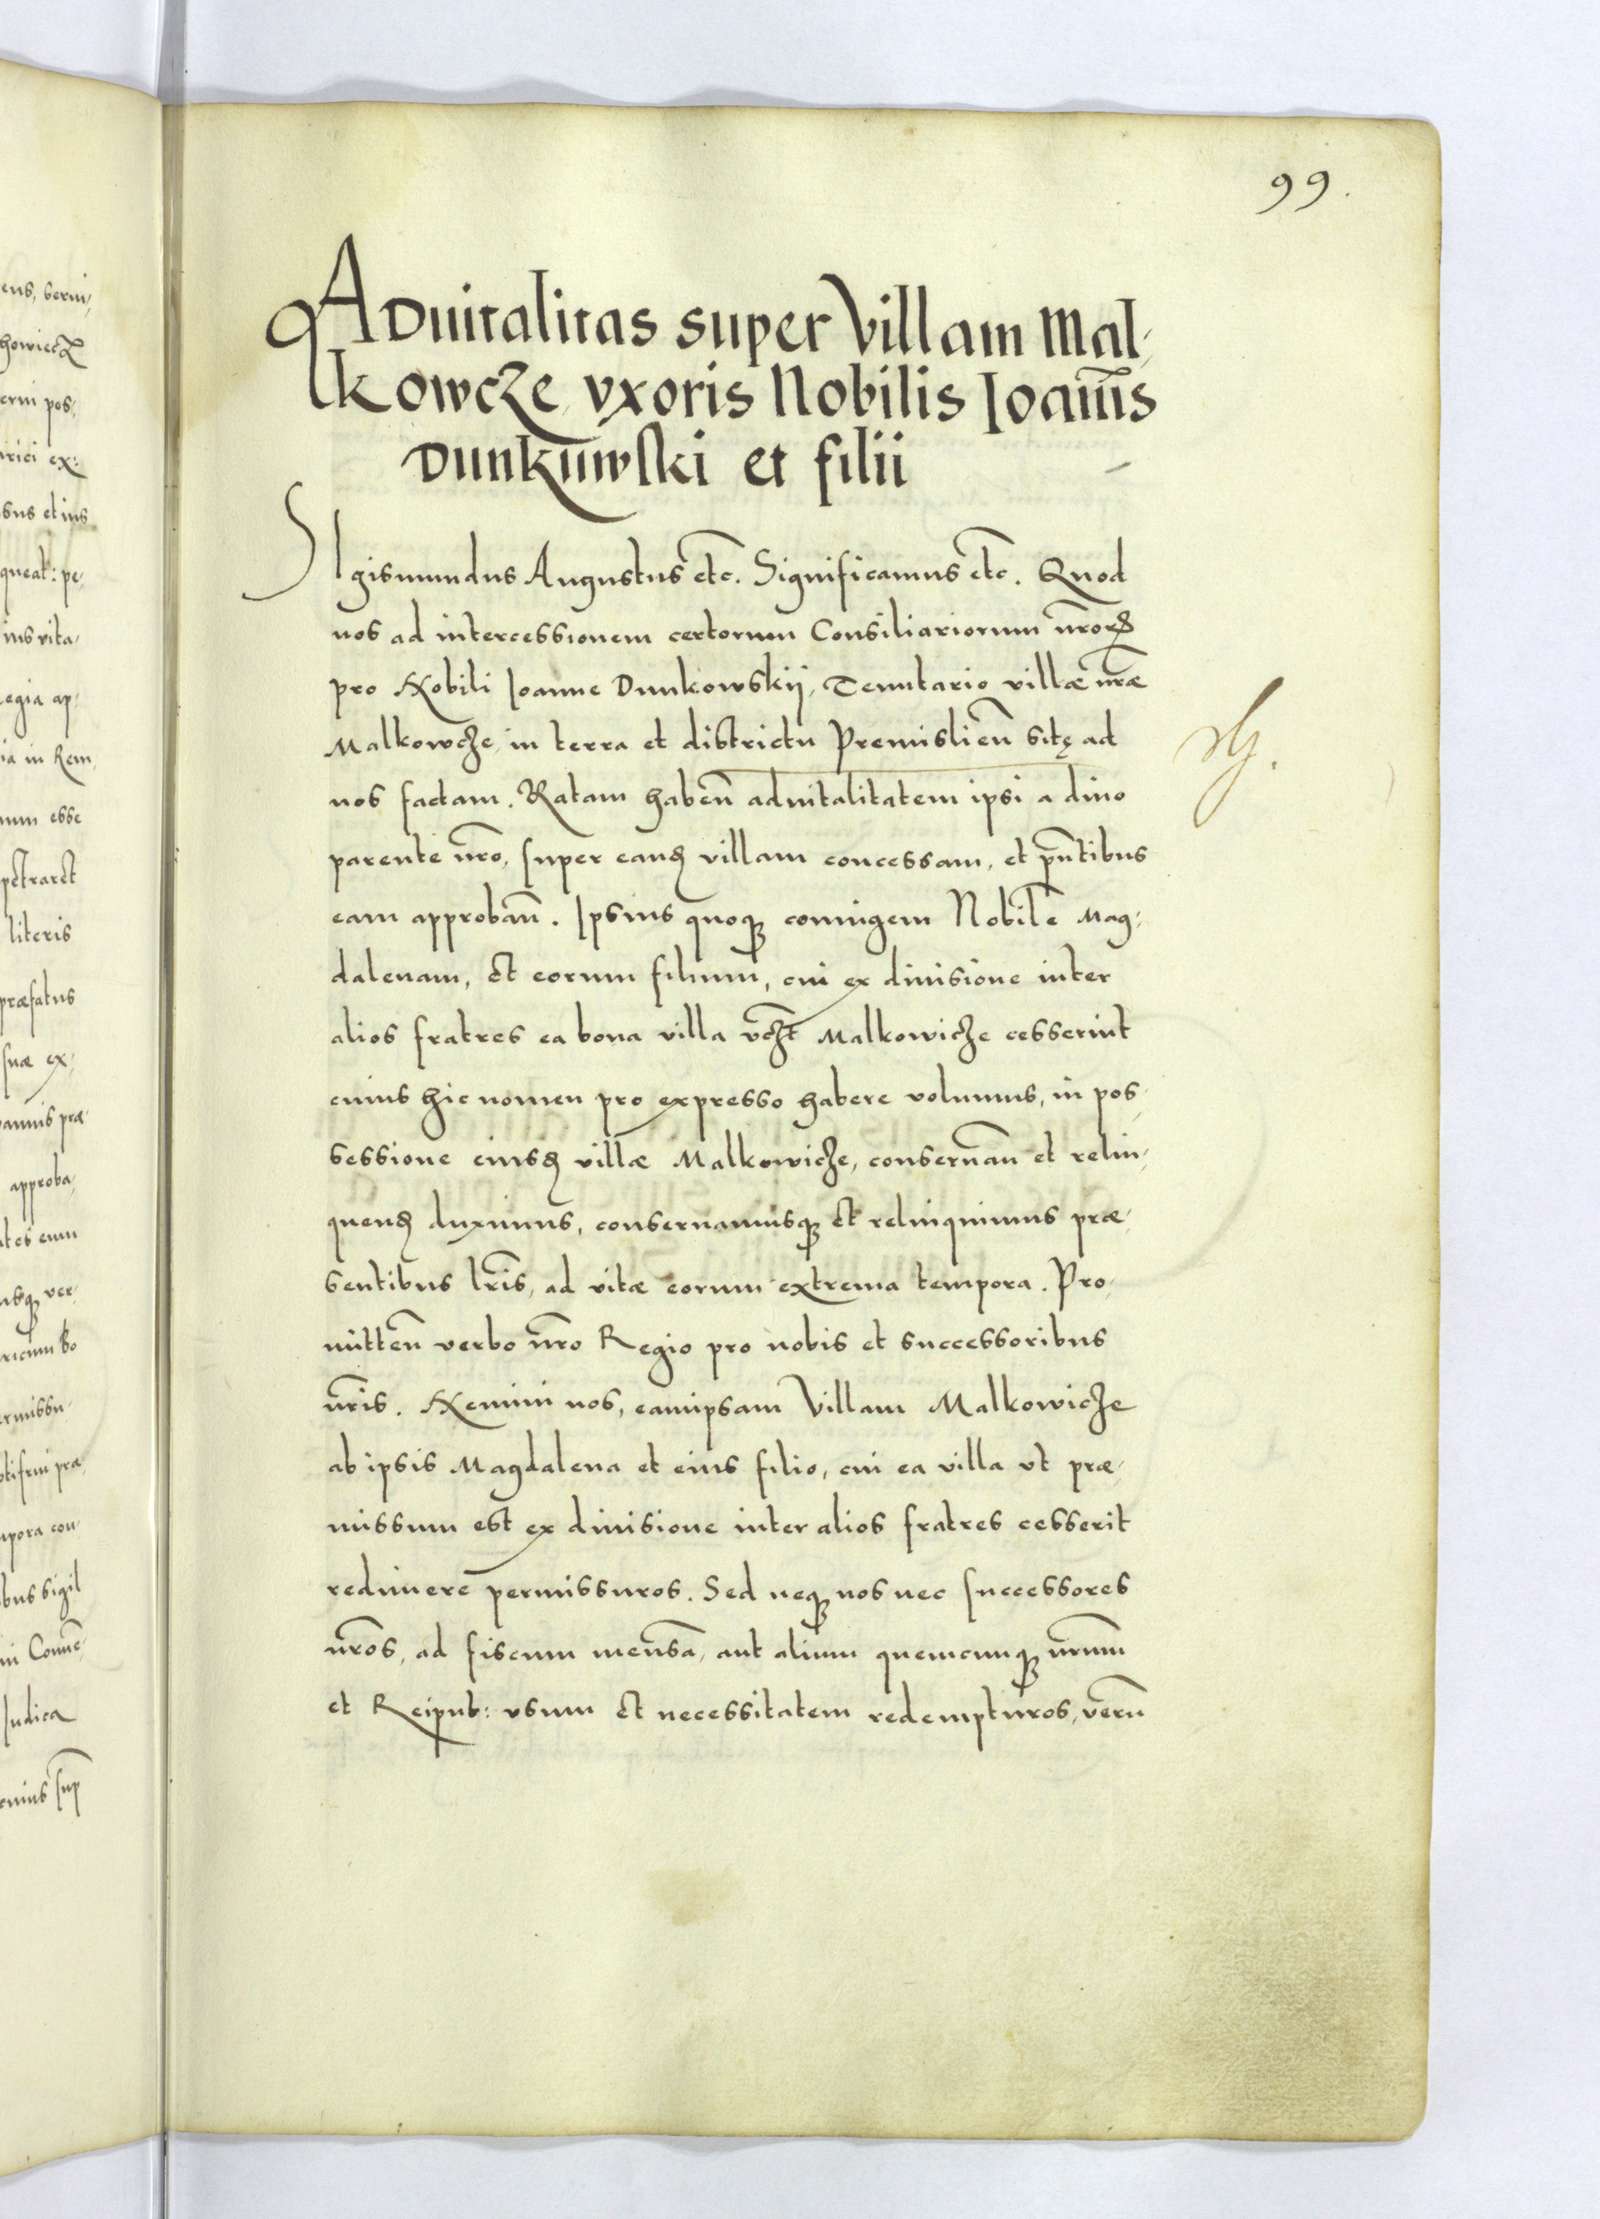 99.
ADuitalitas super Villam Mal-
kowcze vxoris Nobilis Ioannis
Dunkuwski et filii
SIgismundus Augustus etc. Significamus etc. Quod
nos ad intercessionem certorum Consiliariorum nrorum
pro Nobili Ioanne Dunkowskij, Tenutario villæ nræ
Malkowcze, in terra et districtu Premislien̄ sitę ad
nos factam. Ratam haben̄ aduitalitatem ipsi a diuo
parente nr̄o, super eand villam concessam, et pn̄tibus
eam approban̄. Ipsius quoq coniugem Nobilē Mag-
dalenam, et eorum filium, cui ex diuisione inter
alios fratres ea bona villa vczt̄ Malkowicze cesserint
cuius hic nomen pro expresso habere volumus, in pos-
sessione eiusd villæ Malkowicze, conseruan̄ et relin-
quend duximus, conseruamusq et relinquimus præ-
sentibus lr̄is, ad vitæ eorum extrema tempora. Pro-
mitten̄ verbo nr̄o Regio pro nobis et successoribus
nr̄is. Nemini nos, eamipsam Villam Malkowicze
ab ipsis Magdalena et eius filio, cui ea villa vt præ-
missum est ex diuisione inter alios fratres cesserit
redimere permissuros. Sed neq nos nec successores
nr̄os, ad fiscum mensā, aut alium quemcunq nr̄um
et Reipub: vsum et necessitatem redempturos, verū